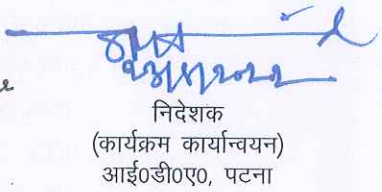 निदेशक
(कार्यक्रम कार्यान्वयन)
आई०डी०ए०, पटना